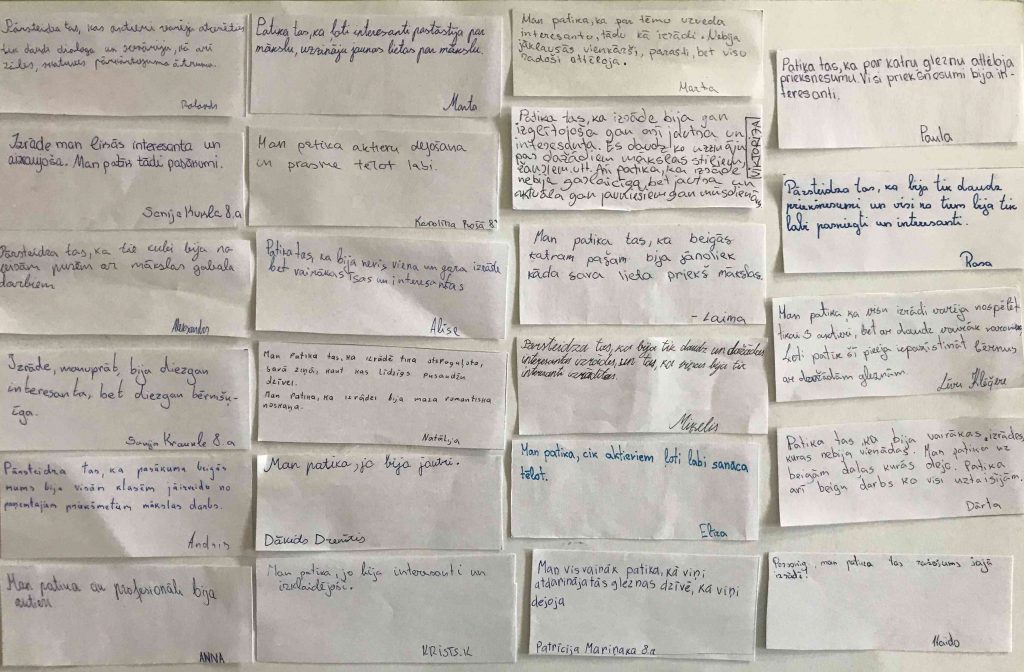 Pārsteidza tas, kas aktieri varēja atcerēties
tik daudz dialoga un scenāriju, kā arī
ātrumu.
Rolands
Izrāde man likās interesanta un
aizraujoša. Man patīk tādi pasākumi.
Sanija 8.a
Pārsteidza tas, ka tie kubi bija no
pusēm ar mākslas gabala
darbiem
Aleksandrs
Izrāde, manuprāt, bija diezgan
interesanta, bet diezgan bērniš-
ķīga.
Sanija Kraukle 8.a
Pārsteidza tas, ka pasākuma beigās
mums bija visām klasēm jāizveido no
paņemtajām priekšmetam mākslas darbs.
Andris
Man patika cik profesionāli bija
aktieri
ANNA
Patika tas, ka ļoti interesanti pastāstīja par
mākslu, uzzināju jaunas lietas par mākslu.
Marta
Man patika aktieru dejošana
un prasme tēlot labi.
Karolīna 8.
Patika tas, ka bija nevis viena un gara izrāde
bet vairākas īsas un interesantas
Alise
Man patika tas, ka izrādē tika atspoguļota,
savā ziņā, kaut kas līdzīgs pusaudžu
dzīvei.
Man patika, ka izrādei bija maza romantiska
noskaņa.
Natālija
Man patika, jo bija jautri.
Dāvids
Man patika, jo bija interesanti un
izklaidējoši.
KRISTS.K
Man patika, ka par tēmu uzveda
interesantu, tādu kā izrādi. Nebija
jāklausās vienkārši, parasti, bet visu
radoši attēloja.
Marta
Patika tas, ka izrāde bija gan
izglītojoša gan arī jautra un
interesanta. Es daudz ko uzzināju
par dažādiem mākslas stiliem,
žanriem utt. Arī patika, ka izrāde
nebija garlaicīga, bet jautra un
aktuāla gan jauniešiem gan mūsdienās
VIKTORIJA
Man patika tas, ka beigās
katram pašam bija jānoliek
kāda sava lieta priekš mākslas.
- Laima
Pārsteidza tas, ka bija tik daudz un dažādas
interesantas izrādes un tas, ka viņas bija tik
interesanti izrādītas.
Miķelis
Man patika, cik aktieriem ļoti labi sanāca
tēlot.
Elza
Man visvairāk patika, kā viņi
atdarināja tās gleznas dzīvē, kā viņi
dejoja
Patrīcija Mariņaka 8.a
Patika tas, ka par katru gleznu attēloja
priekšnesumu. Visi priekšnesumi bija in-
teresanti.
Paula
Pārsteidza tas, ka bija tik daudz
priekšnesumi un visi no tiem bija tik
labi pasniegti un interesanti.
Rasa
Man patika ka visu izrādi varēja nospēlēt
tikai 3 aktieri, bet ar daudz vairāk varoņiem.
Ļoti patīk šī pieeja iepazīstināt bērnus
ar dažādām gleznām.
Līva
Patika tas, ka bija vairākas izrādes
kuras nebija vienādas. Man patika uz
beigām daļas kurās dejo. Patika
arī beigu darbs ko visi uztaisījām.
Dārta
man patika tas šajā
izrādē!